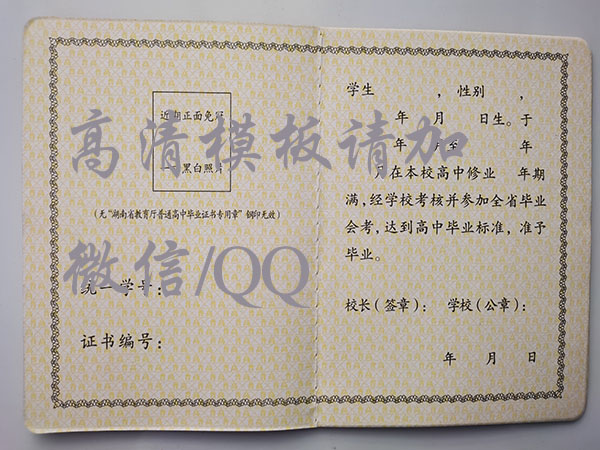 近期正面免冠
一寸黑白照片
(无“湖南省教育厅普通高中毕业证书专用章”钢印无效)
统一学号：
证书编号：
学生　　　，性别　　，
年　月　日生。于
年　月至　　年
月在本校高中修业　年期
满，经学校考核并参加全省毕业
会考，达到高中毕业标准，准予
毕业。
校长(签章)：　学校(公章)：
年　月　日
高清模板请加
微信/QQ